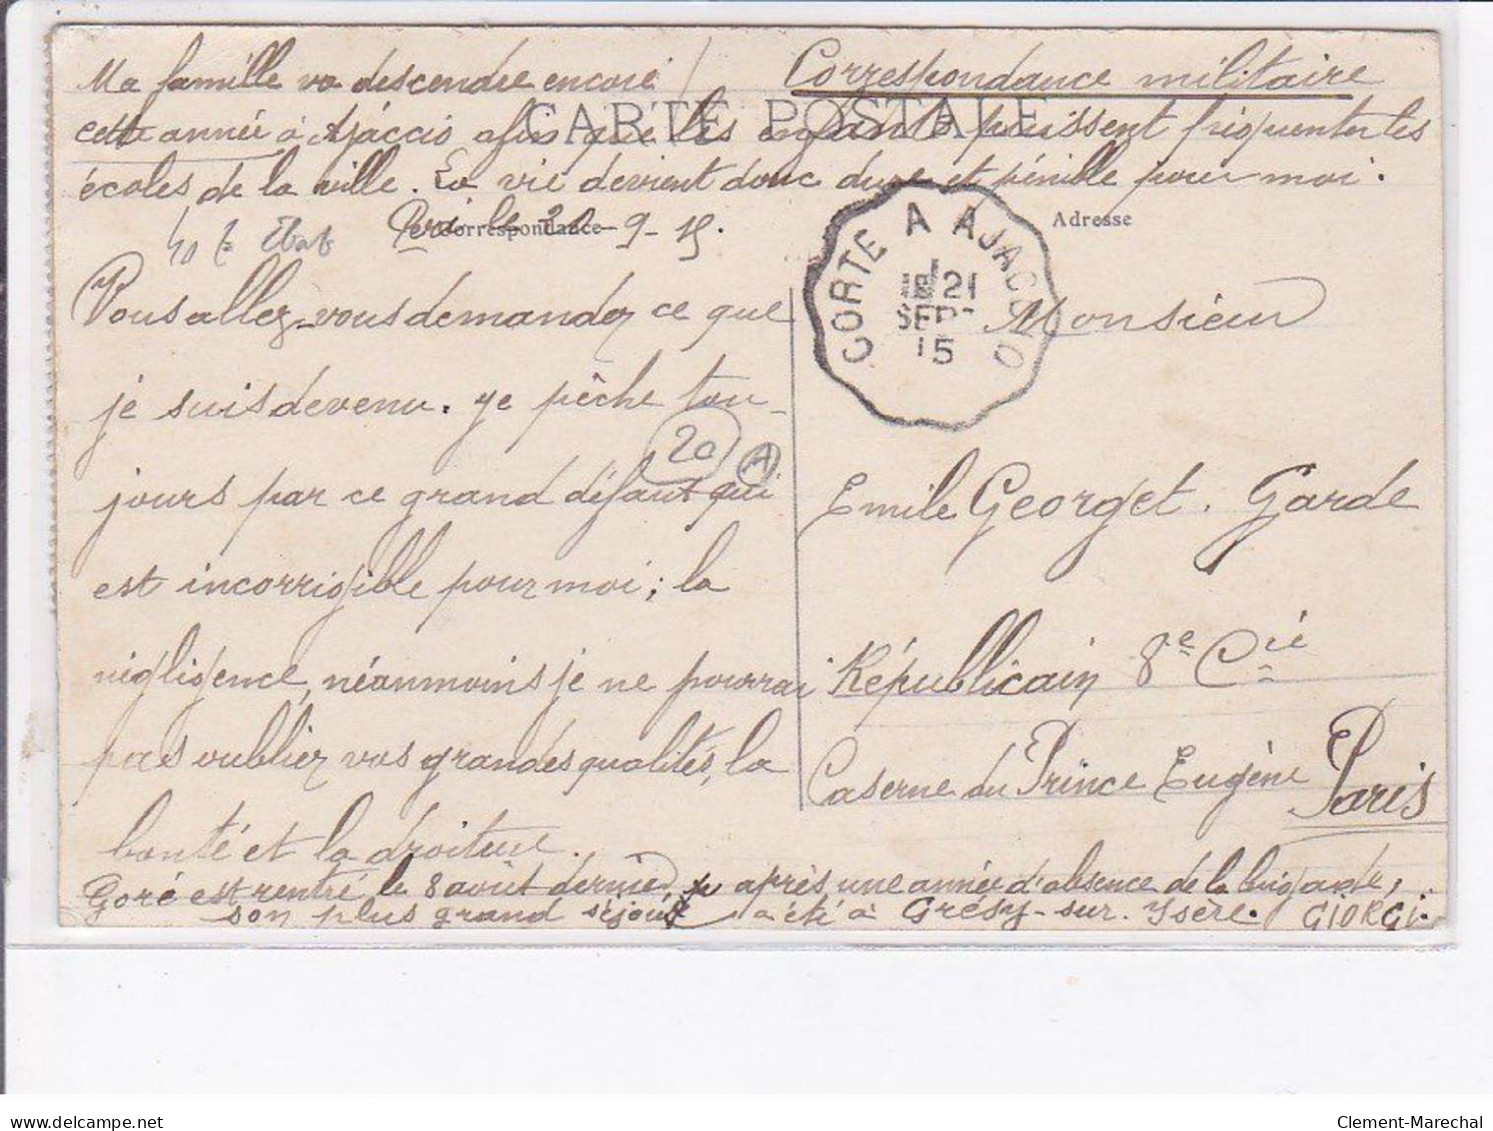 Ma famille va descendre encore / Correspondance militaire
CARTE POSTALE
cette année à Ajaccio afin que les enfants puissent fréquenter les
écoles de la ville. La vie devient donc dure et pénible pour moi.
Peri le 20-9-15.
Correspondance
Adresse
CORTE A AJACCIO
21
SEPT
15
Vous allez-vous demander ce que
je suis devenu. Je pêche tou-
20 A
jours par ce grand défaut qui
est incorrigible pour moi; la
négligence, néanmoins je ne pourrai
pas oublier vos grandes qualités, la
bonté et la droiture.
Monsieur
Emile Georget. Garde
Républicain 8e Cie
Caserne du Prince Eugène Paris
Goré est rentré le 8 août dernier après une année d'absence de la brigade,
son plus grand séjour a été à Grésy-sur-Isère. GIORGI.
Clement-Marechal